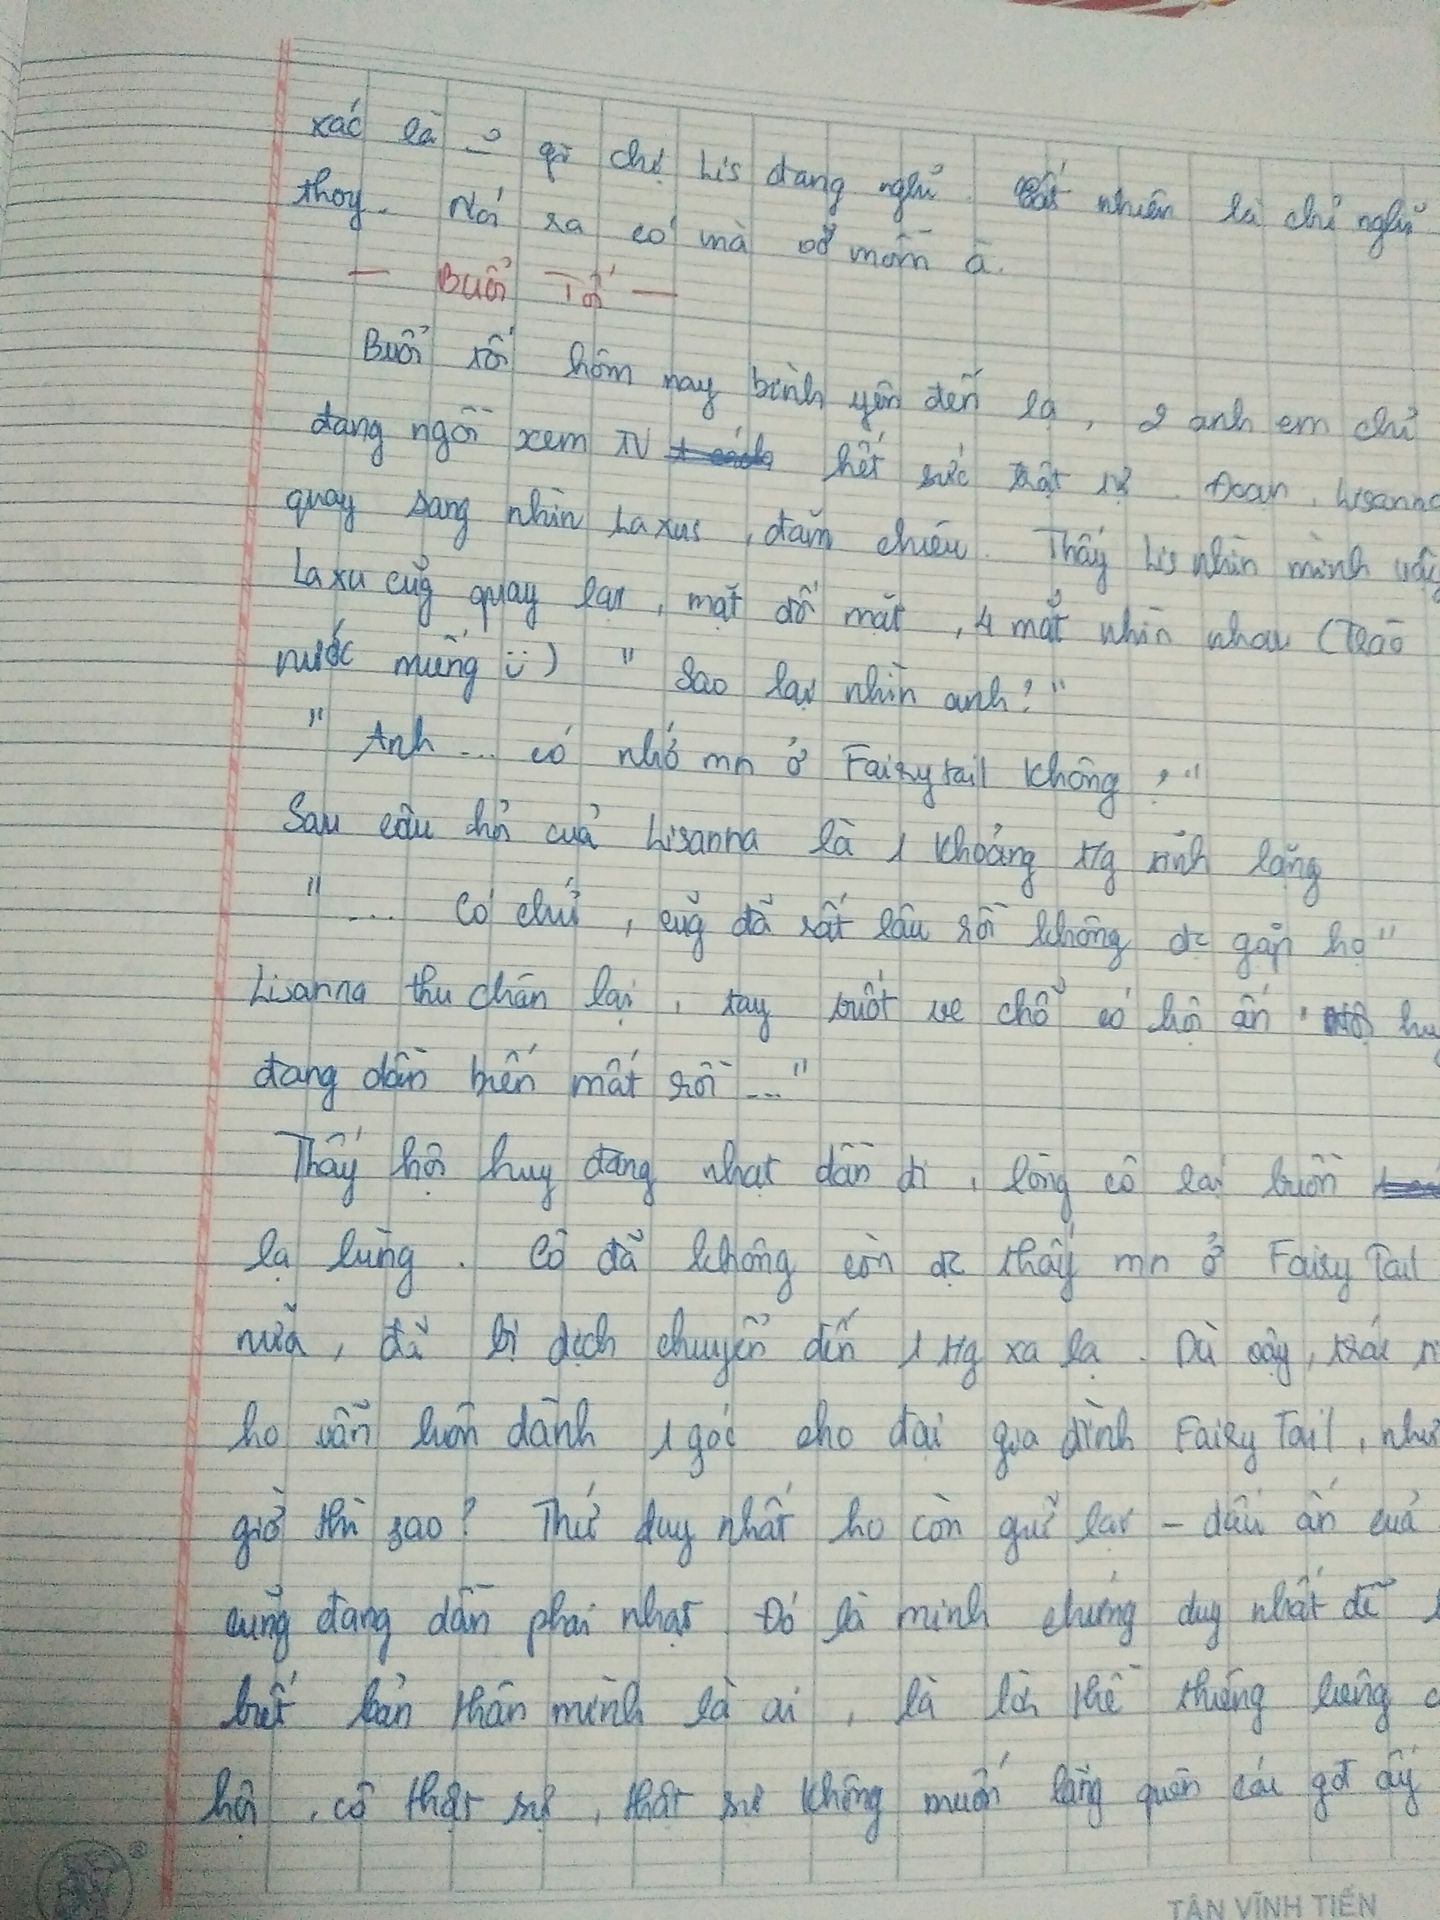 xác là gì chị Lis đang nghĩ. tất nhiên là chỉ nghĩ
thoy. Nói ra có mà vỡ mồm à.
— Buổi Tối —
Buổi tối hôm nay bình yên đến lạ, 2 anh em chỉ
đang ngồi xem TV hết sức trật tự. Đoạn, Lisanna
quay sang nhìn Laxus, đăm chiêu. Thấy Lis nhìn mình vậy
Laxu cũg quay lại, mặt đối mặt, 4 mắt nhìn nhau (Trào
nước miếng ü) " Sao lại nhìn anh?"
" Anh ... có nhớ mn ở Fairy tail không?"
Sau câu hỏi của Lisanna là 1 khoảng t/g tĩnh lặng
" ... Có chứ, cũg đã rất lâu rồi không đc gặp họ"
Lisanna thu chân lại, tay vuốt ve chỗ có hội ấn "
đang dần biến mất rồi ..."
Thấy hội huy đang nhạt dần đi, lòng cô lại buồn
lạ lùng. Cô đã không còn đc thấy mn ở Fairy Tail
nữa, đã bị dịch chuyển đến 1 t/g xa lạ. Dù vậy, trái
họ vẫn luôn dành 1 góc cho đại gia đình Fairy Tail, như
giờ thì sao? Thứ duy nhất họ còn giữ lại - dấu ấn của
cũng đang dần phai nhạt. Đó là minh chứng duy nhất để
biết bản thân mình là ai, là lời thề thiêng liêng
hội, cô thật sự, thật sự không muốn lãng quên cái
TÂN VĨNH TIẾN